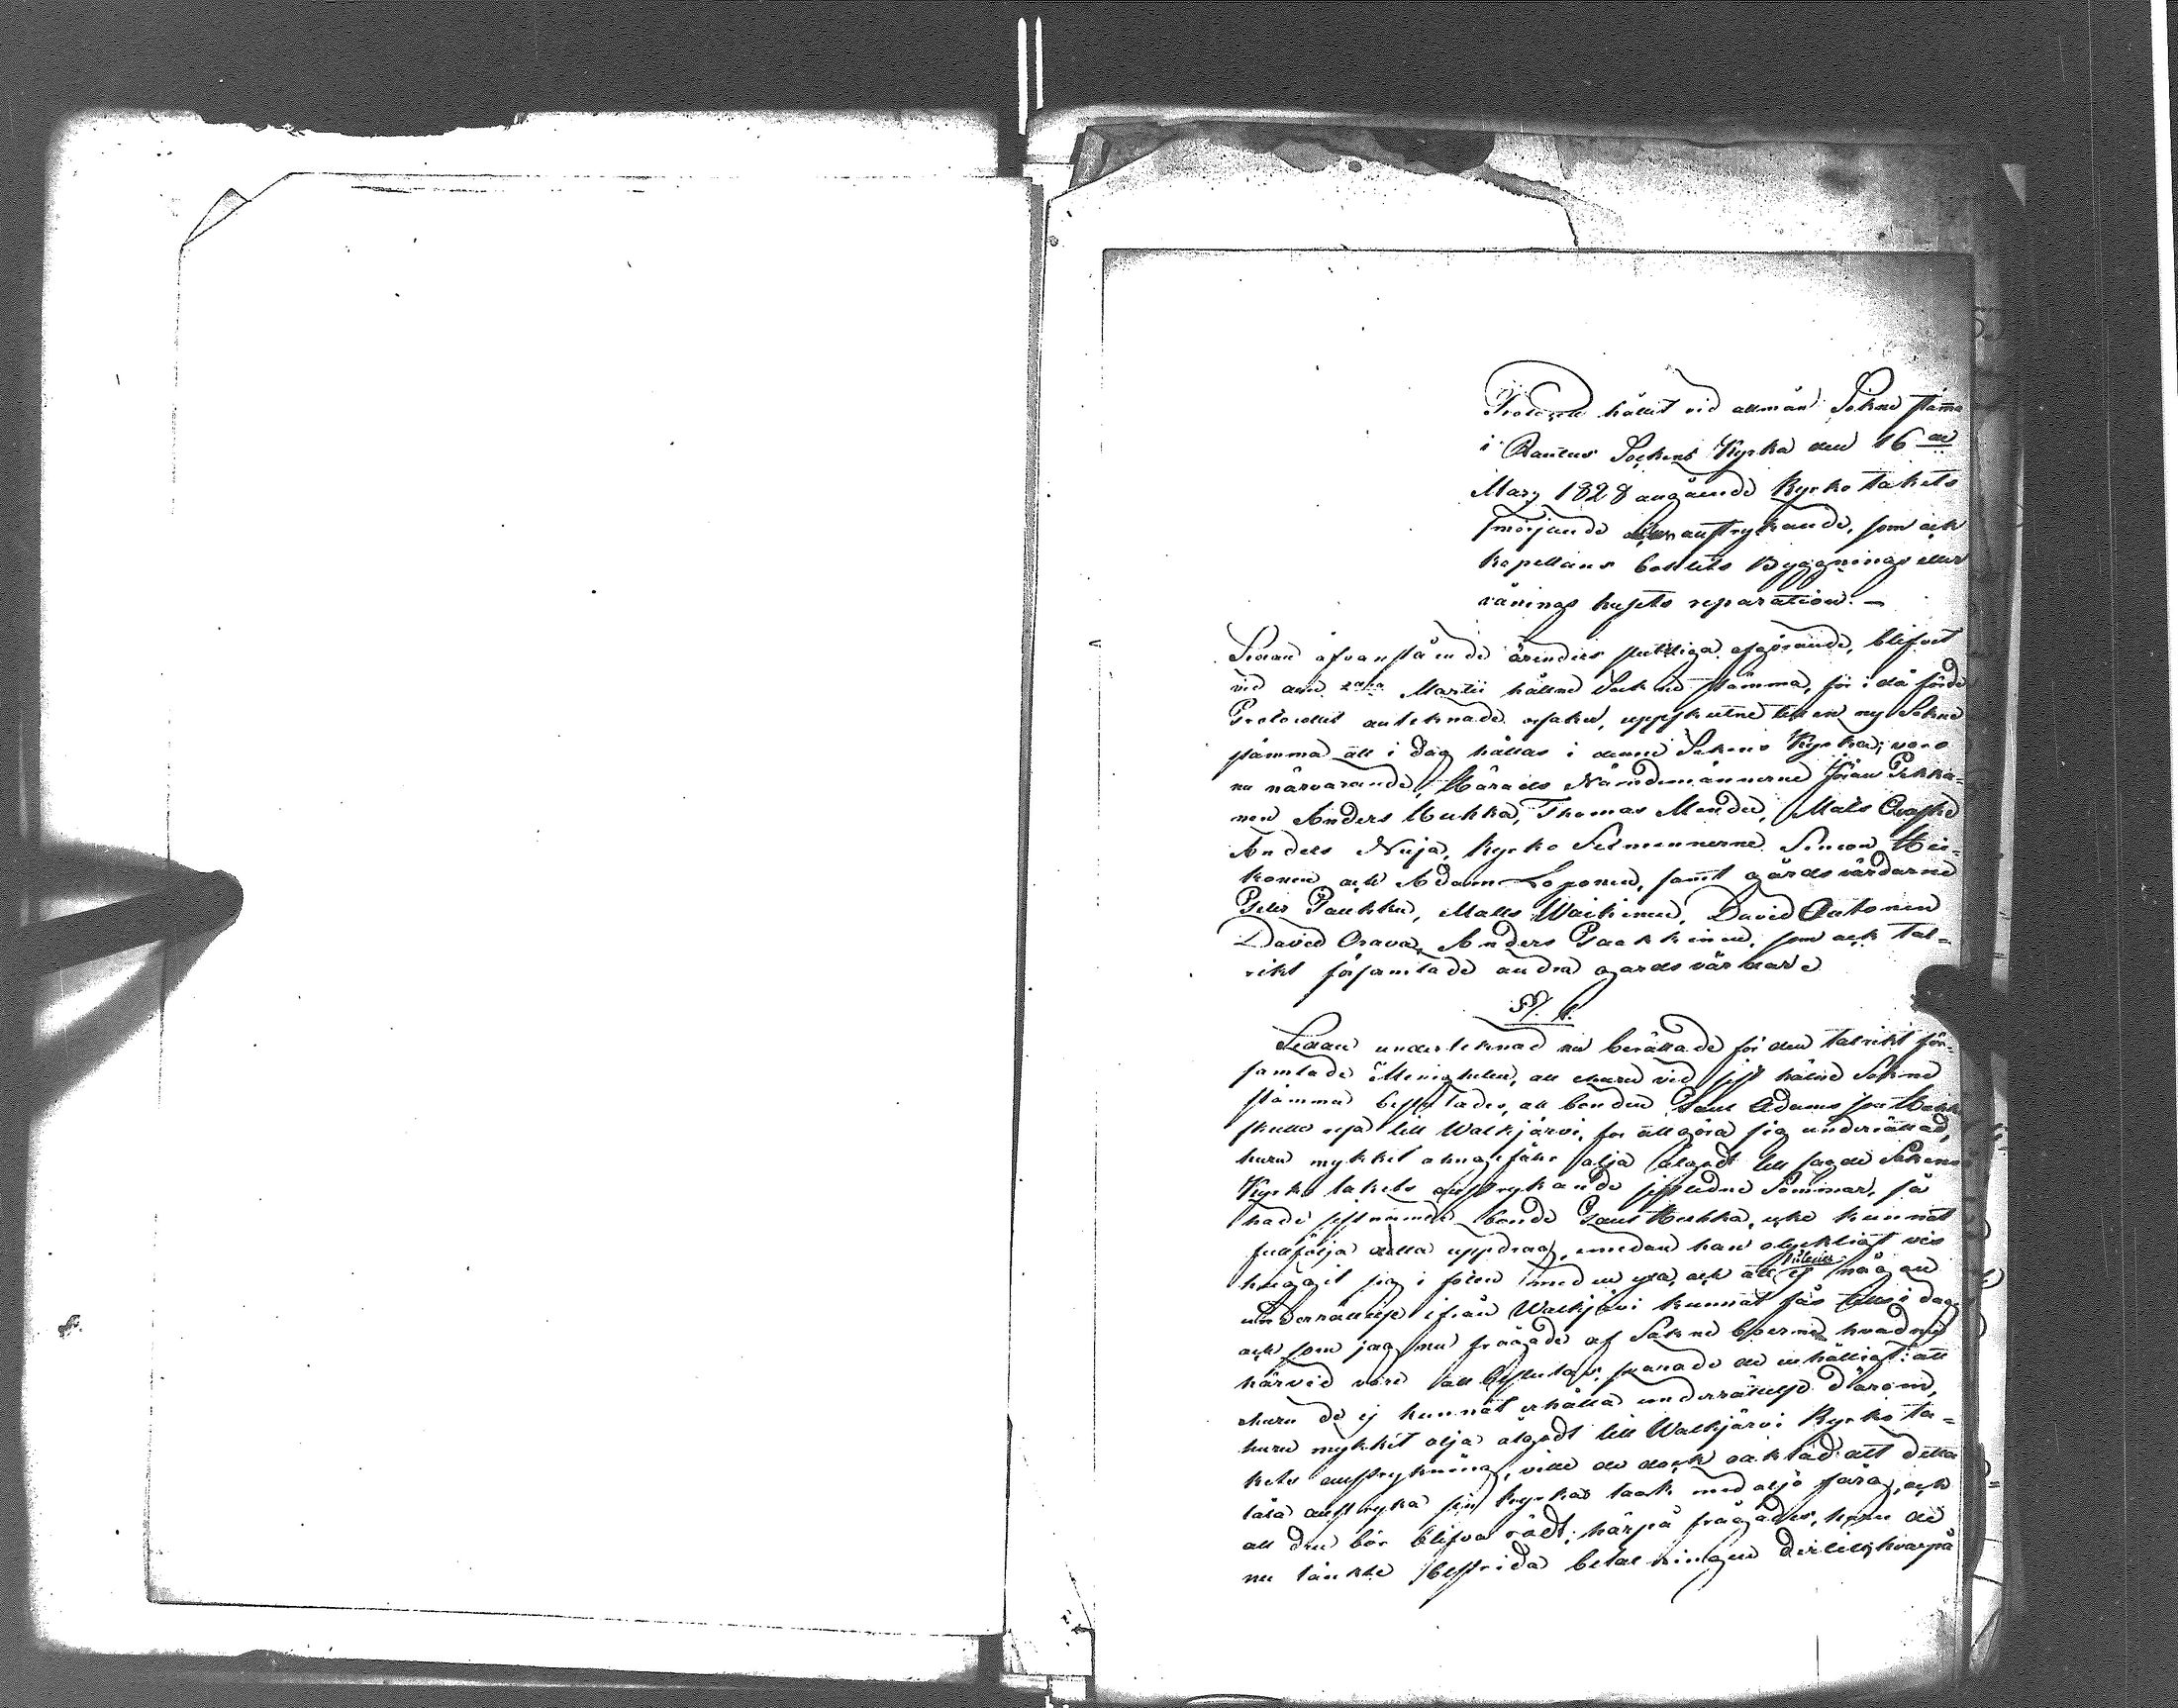 Protocoll hållit vid allmän Sokne stämma
i Rautus Sockens Kyrka den 16 de
Marz 1828 angående Kyrko takets
smörjande eller anstrykande, som ack
kapellans bohlets Byggnings eller
vånings husets reparation. —
Sedan ofvanstående ärenders slutliga afgörande, blifvet
vid den Martii hållne Sokne stämma, för i då förde
Protocollet anteknade orsaker, uppskutne till en ny Sokne
stämma att i dag hållas i denne Sokens Kyrka; voro
nu närvarande, Härads Nämdemännerne Johan Pekka=
nen Anders Hukka, Thomas Mondu, Mats Orasku
Anders Nuija, Kyrko Sexmennerne Simon Hei=
konen ack Adam Loponen, samt gårdsvärdarne
Peter Paukku, Matts Waikinen, David Autonen
David Orava, Anders Paakkinen, som ack tal=
rikt församlade andra gårdsvärdare
§. 1.
Sedan underteknad nu berättade för den talrikt för=
samlade Menigheten, att ehuru vid sist hålne Sokne
stämma beslutades, att bonden Paul Adams son Hukka
skulle resa till Walkjärvi, for att göra sig underrättad,
huru mykket ohngefähr olja åtgodt till sagde Sokens
Kyrko takets anstrykande sistledne Sommar, så
hade sistnämde bonde Paul Hukka, icke kunnat
fullfölja detta uppdrag, emedan han olyckligt vis
huggit sig i foten med en yxa, ack att ej någon
underrättelse ifrån Walkjärvi kunnat fås tills i dag
ack som jag nu frågade af Sokne boerne hvad nu
härvid vore att beslutas, svarade de enhälligt: att
ehuru de ej kunnat erhålla underrättelse därom,
huru mykkit olja åtgodt till Walkjärvi Kyrko ta=
kets anstrykning, ville de dock oaktad att detta
låta anstryka sin kyrkas taak med oljo färg, ack
att den bör blifva rödt; härpå frågades, huru de
nu tänkte bestrida betalningen dertill, hvarpå